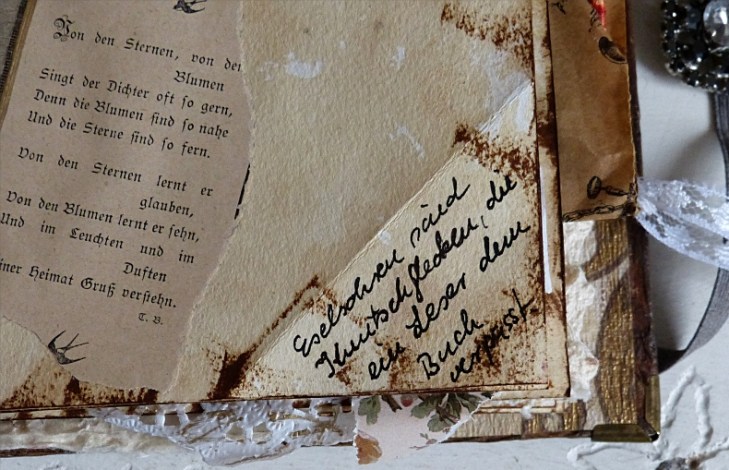 Von den Sternen, von den
Blumen
Singt der Dichter oft ſo gern,
Denn die Blumen ſind ſo nahe
Und die Sterne ſind ſo fern.
Von den Sternen lernt er
glauben,
Von den Blumen lernt er ſehn,
Und im Leuchten und im
Duften
einer Heimat Gruß verſtehn.
T. B.
Eselsohren sind
Knutschflecken, die
ein Leser dem
Buch
verpasst